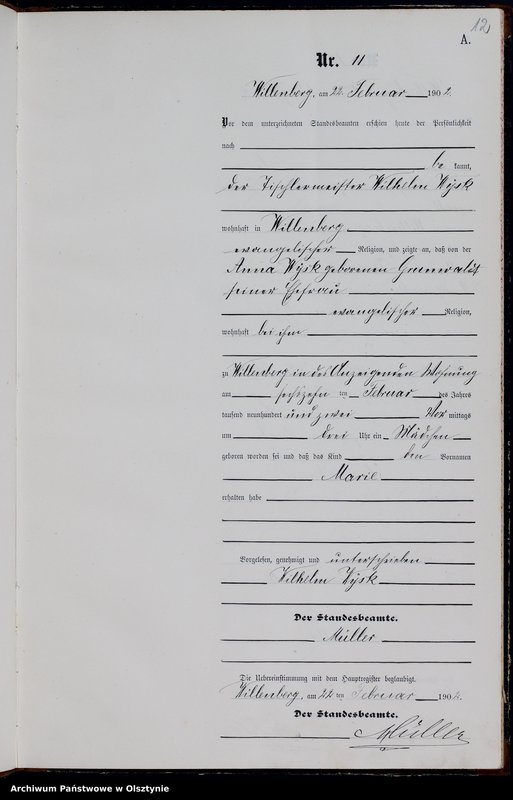 12
A.
Nr. 11
Willenberg, am 22. Februar 1902.
Vor dem unterzeichneten Standesbeamten erschien heute der Persönlichkeit
nach
be kannt,
der Tischlermeister Wilhelm Wysk
wohnhaft in Willenberg
evangelischer Religion, und zeigte an, daß von der
Anna Wysk geborenen Grunwald
seiner Ehefrau
evangelischer Religion,
wohnhaft bei ihm
zu Willenberg in des Anzeigenden Wohnung
am sechszehn ten Februar des Jahres
tausend neunhundert und zwei Vor mittags
um drei Uhr ein Mädchen
geboren worden sei und daß das Kind den Vornamen
Marie
erhalten habe
Vorgelesen, genehmigt und unterschrieben
Wilhelm Wysk
Der Standesbeamte.
Müller
Die Uebereinstimmung mit dem Hauptregister beglaubigt.
Willenberg, am 22 ten Februar 1902.
Der Standesbeamte.
Müller
Archiwum Państwowe w Olsztynie